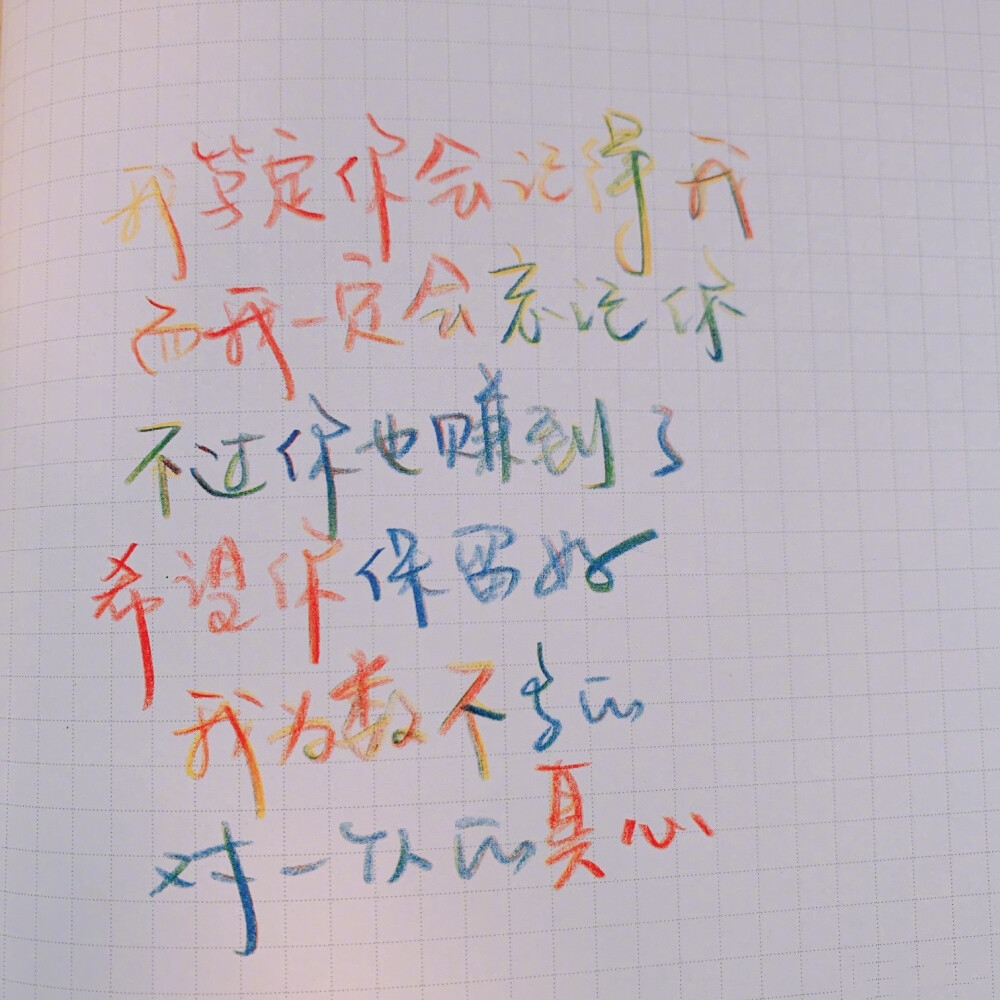 我笃定你会记得我
而我一定会忘记你
不过你也赚到了
希望你保留好
我为数不多的
对一个人的真心